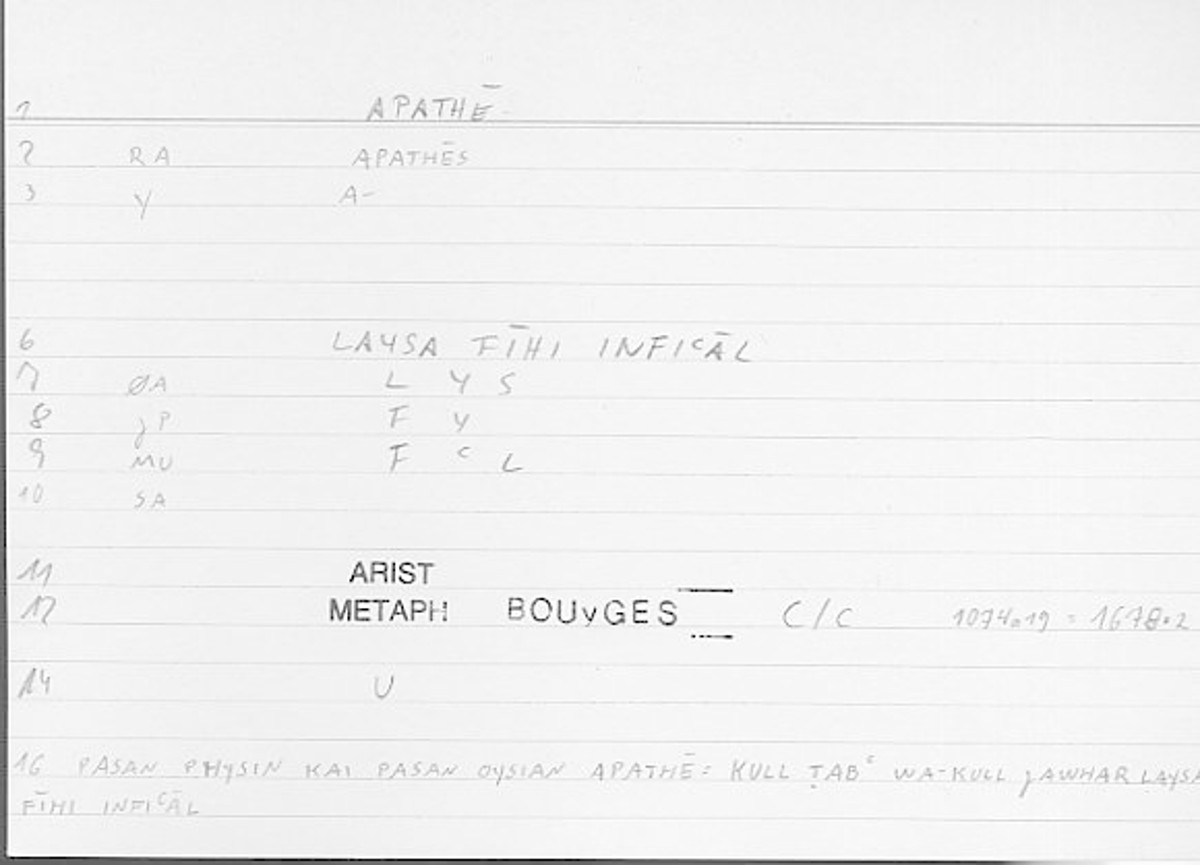 1 APATHĒ
2 RA APATHĒS
3 Y A-
6 LAYSA FĪHI INFIᶜĀL
7 ØA L Y S
8 JP F Y
9 MU F ᶜ L
10 SA
11 ARIST
12 METAPH BOUYGES C/C 1074a19 = 1678.2
14 U
16 PASAN PHYSIN KAI PASAN OYSIAN APATHĒ: KULL ṬABᶜ WA-KULL JAWHAR LAYSA
FĪHI INFIᶜĀL